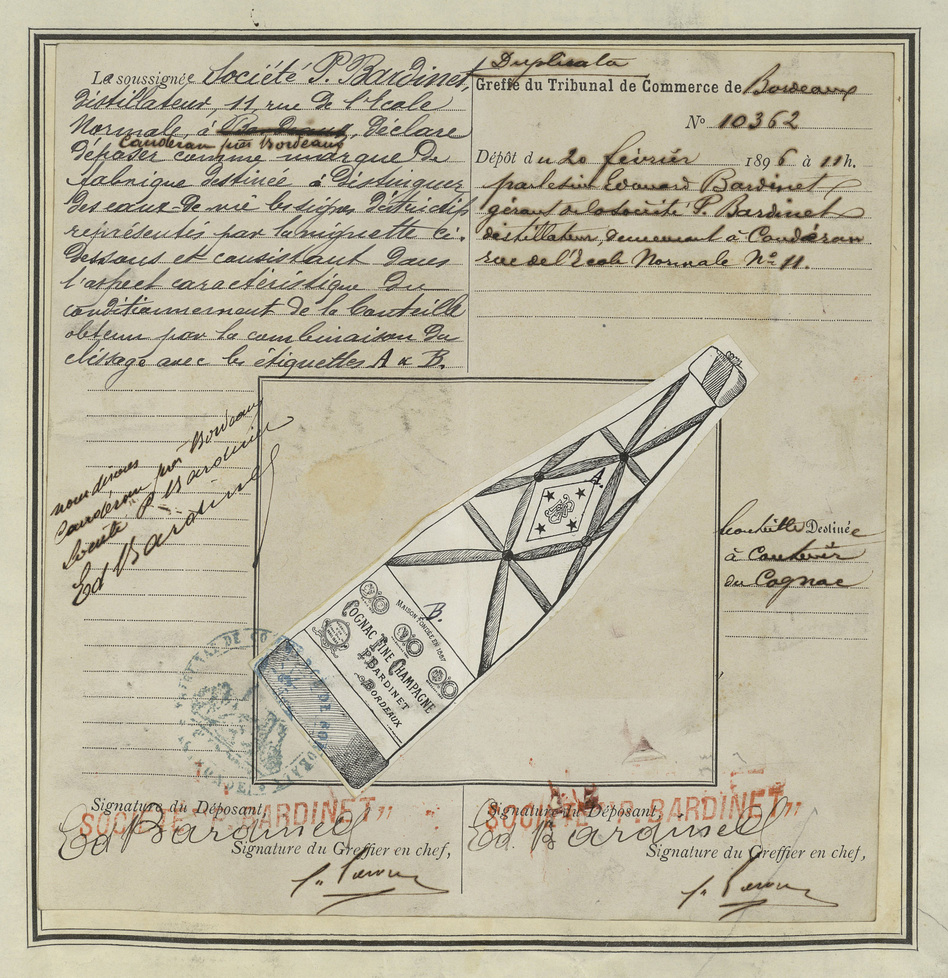 La soussignée Société P. Bardinet,
distillateur, 11, rue de l'Ecole
Normale, à Bordeaux, déclare
Caudéran près Bordeaux
déposer comme marque de
fabrique destinée à distinguer
des eaux-de-vie les signes distinctifs
représentés par la vignette ci-
dessous et consistant dans
l'aspect caractéristique du
conditionnement de la bouteille
obtenu par la combinaison du
clissage avec les étiquettes A & B.
Duplicata
Greffe du Tribunal de Commerce de Bordeaux
No 10362
Dépôt du 20 février 1896 à 11 h.
par le sieur Edouard Bardinet
gérant de la société P. Bardinet
distillateur, demeurant à Caudéran
rue de l'Ecole Normale No 11.
nous disons
Caudéran près Bordeaux
Société P. Bardinet
Ed Bardinet
A
B.
MAISON FONDÉE EN 1857
COGNAC FINE CHAMPAGNE
P. BARDINET
BORDEAUX
bouteille Destinée
à contenir
du Cognac
TRIBUNAL DE COMMERCE DE BORDEAUX
GIRONDE
Signature du Déposant,
SOCIÉTÉ "P. BARDINET"
Ed Bardinet
Signature du Greffier en chef,
Signature du Déposant,
SOCIÉTÉ "P. BARDINET"
Ed. Bardinet
Signature du Greffier en chef,